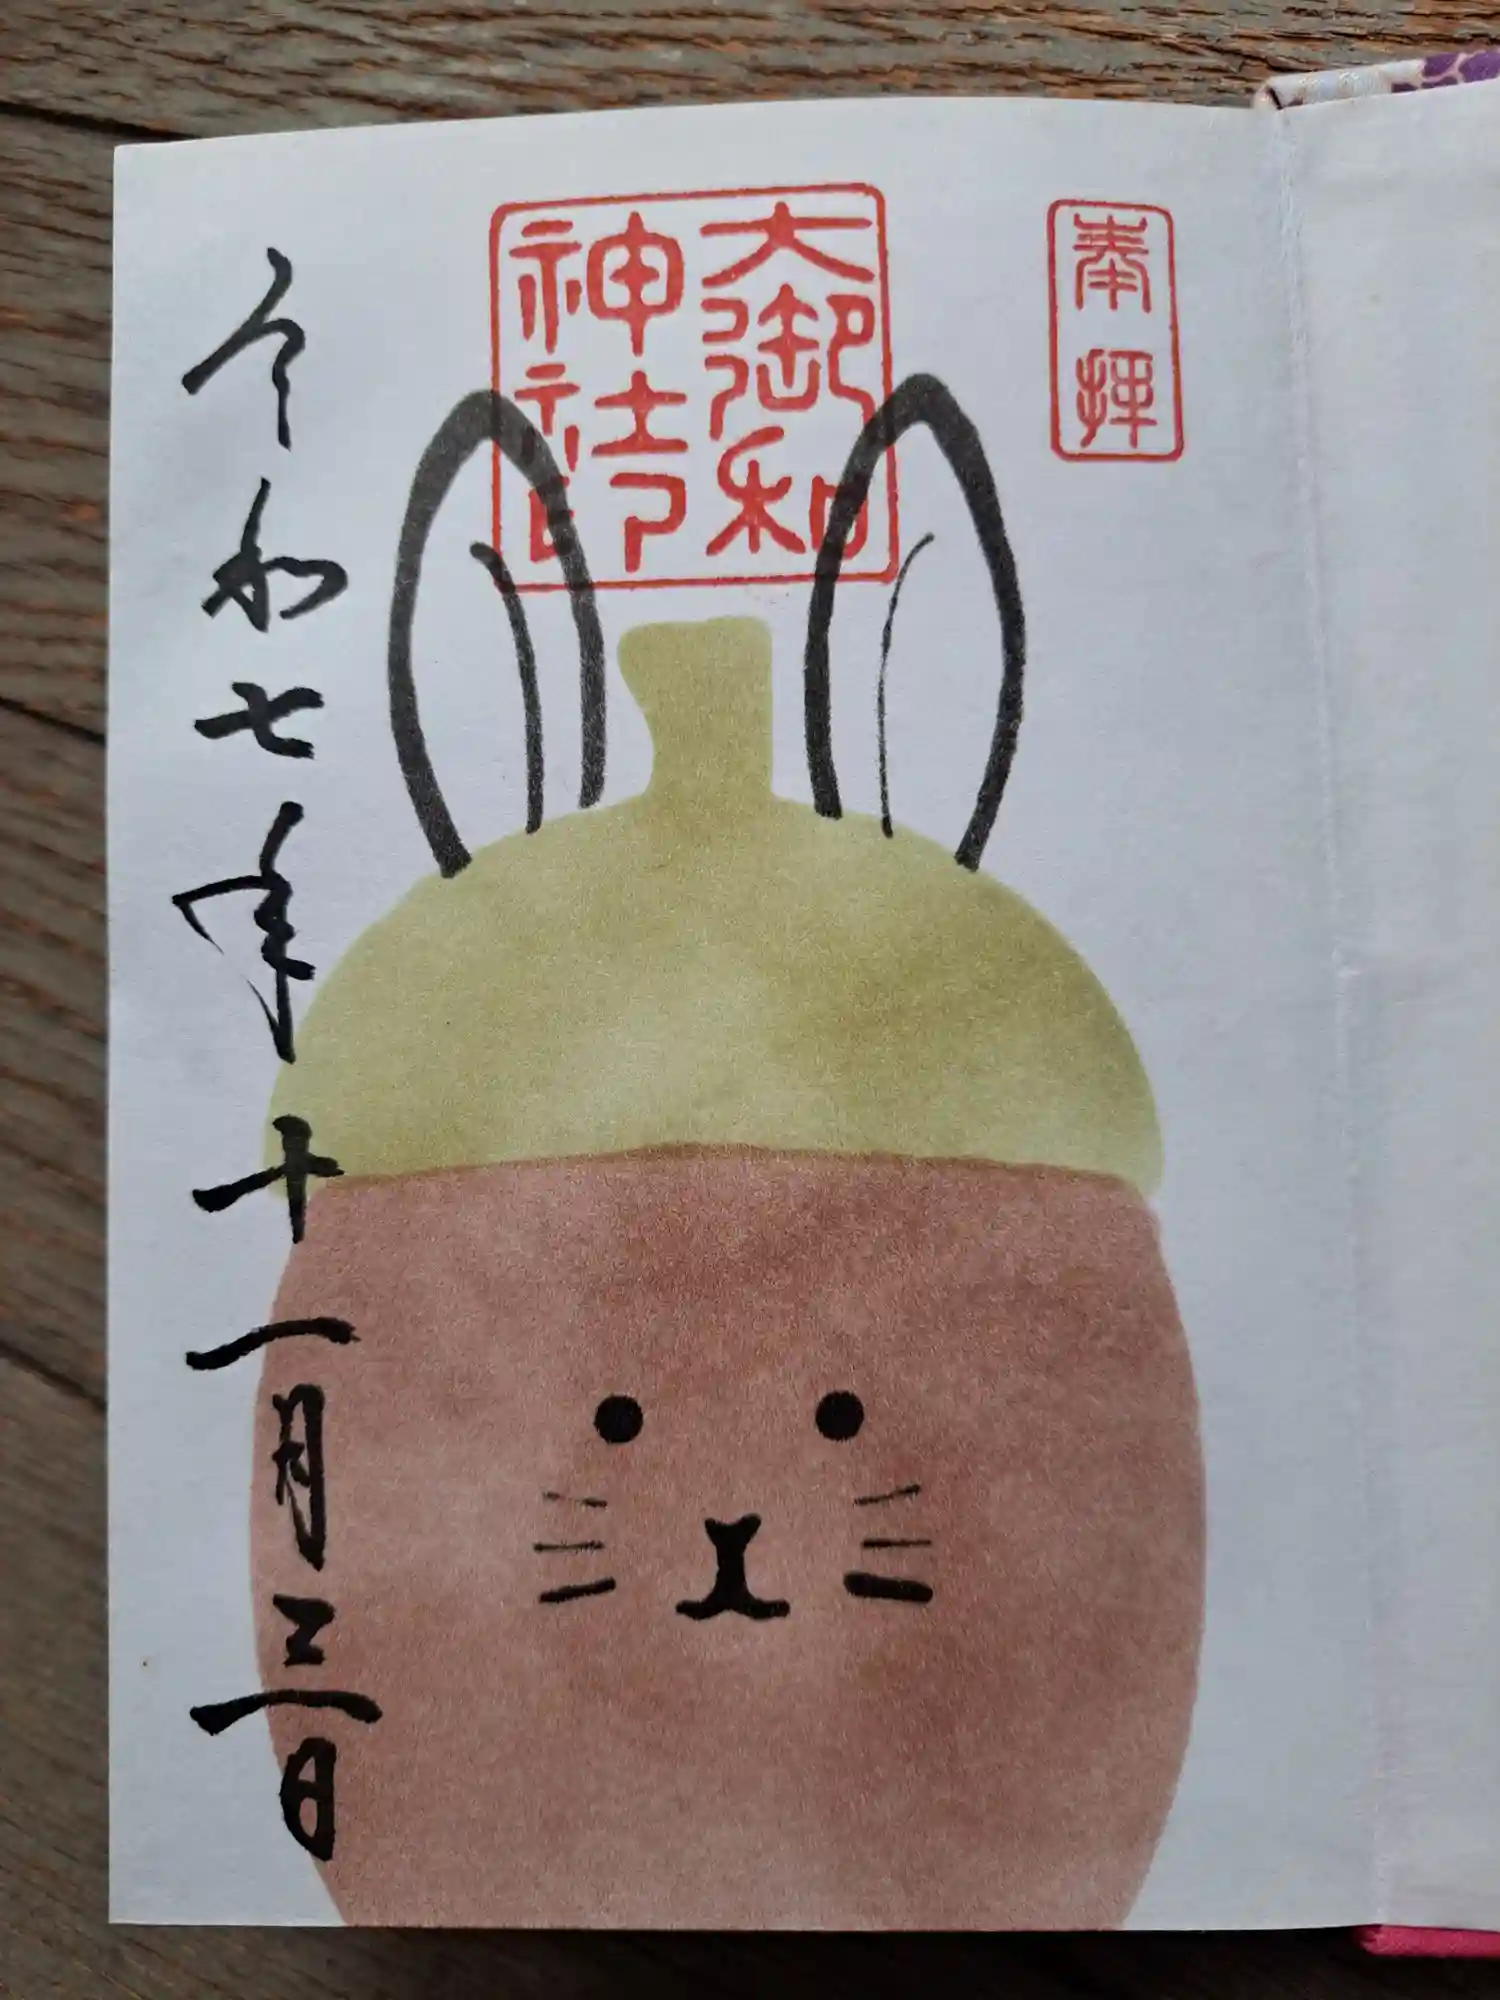 奉拝
大御和
神社
令和七年十一月三日